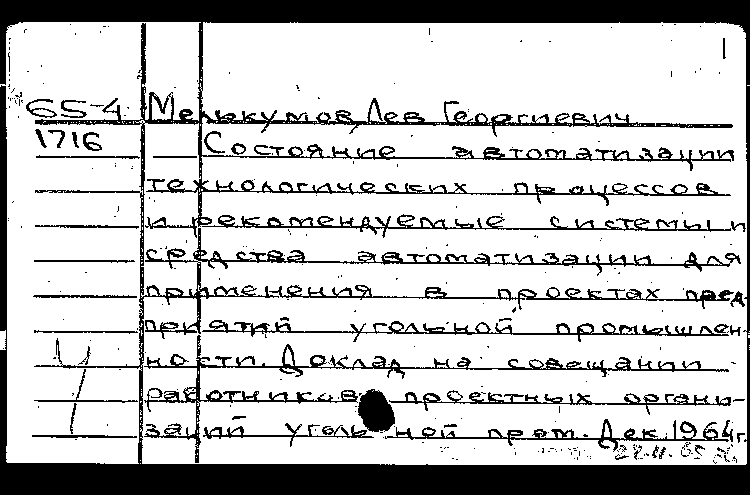 65-4 Мелькумов, Лев Георгиевич
1716 Состояние автоматизации
технологических процессов
и рекомендуемые системы и
средства автоматизации для
применения в проектах пред-
приятий угольной промышлен-
ности. Доклад на совещании
работников проектных органи-
заций угольной пром. Дек. 1964г.
22.11.65